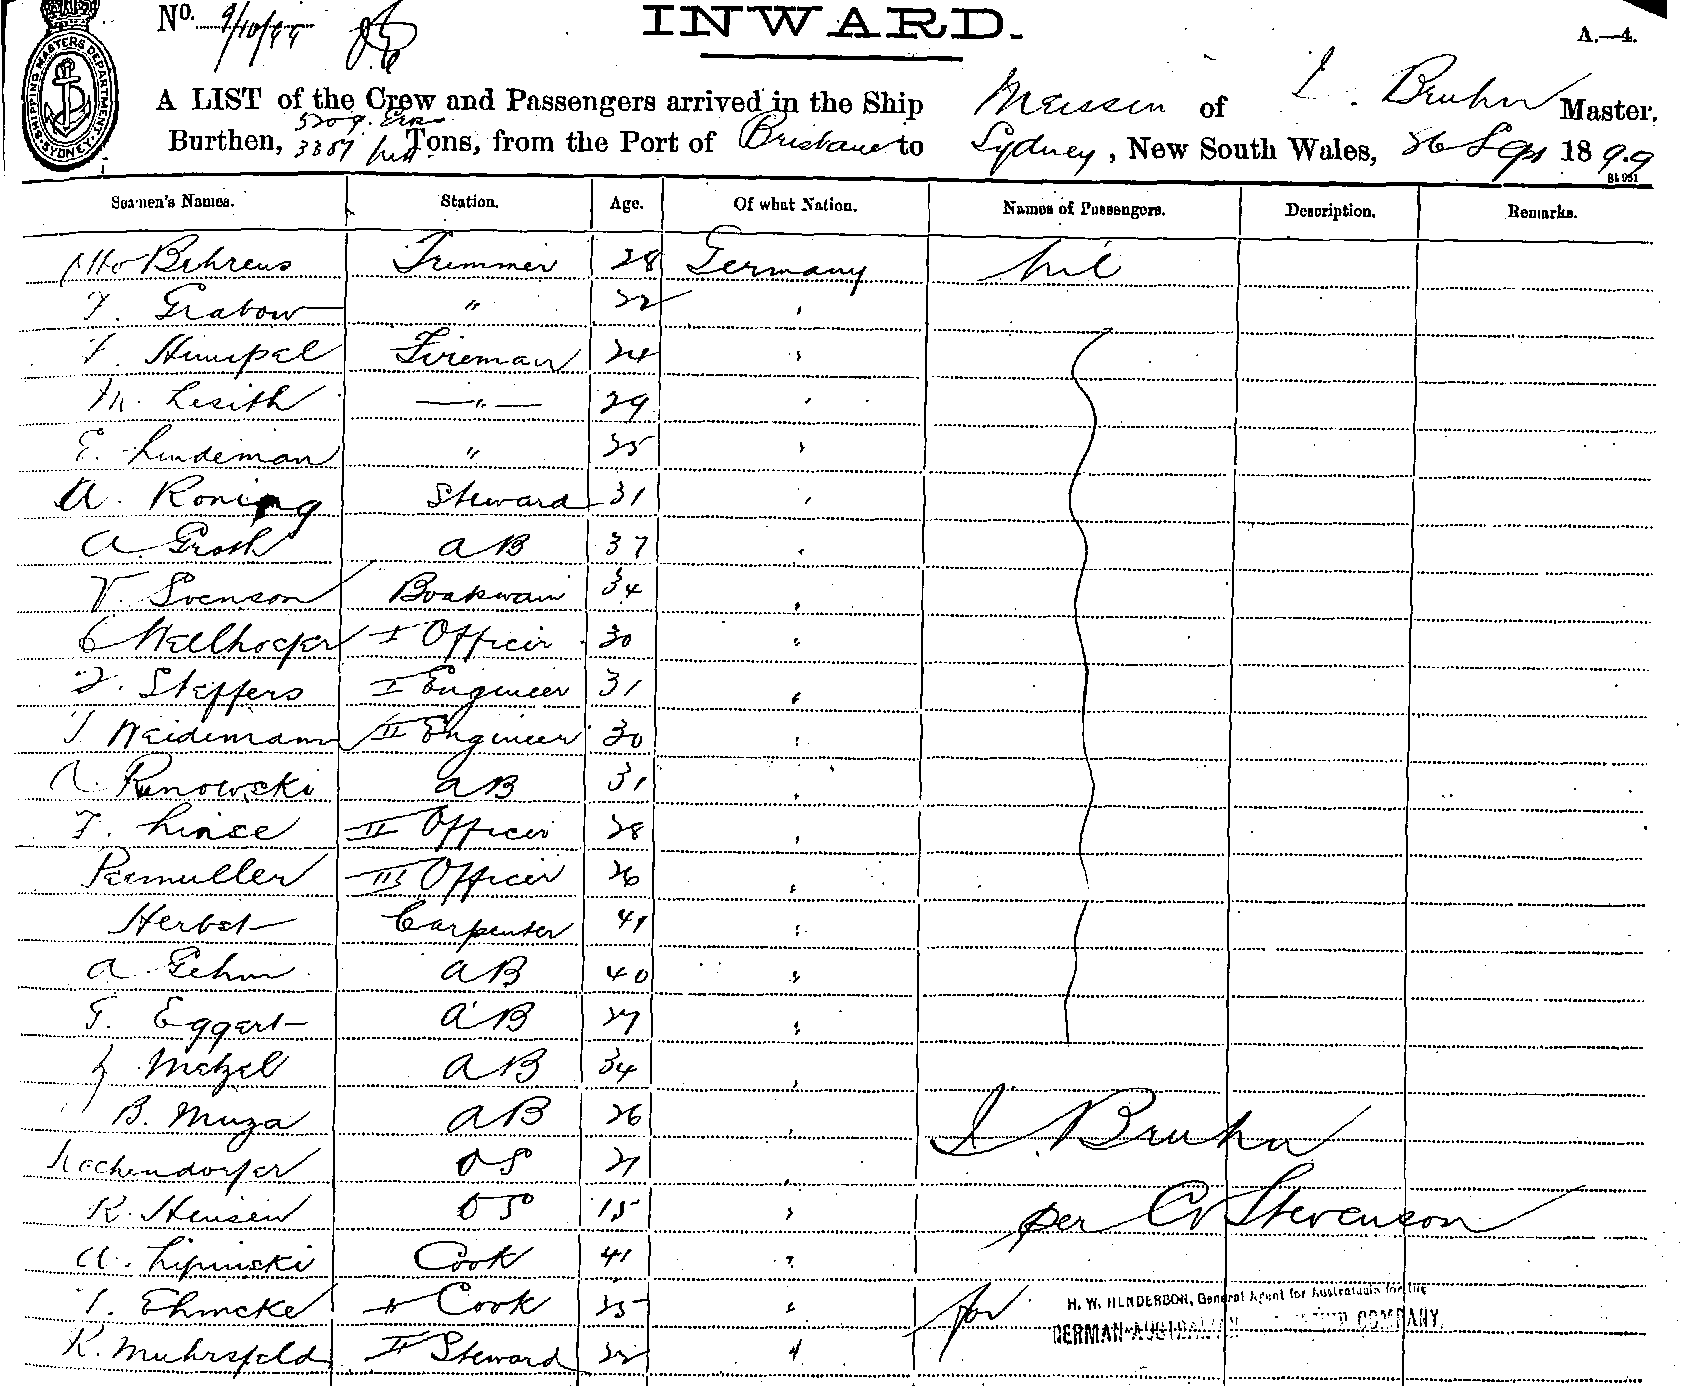 No. 9/10/99
INWARD.
A.—4.
SHIPPING MASTERS DEPARTMENT. SYDNEY.
A LIST of the Crew and Passengers arrived in the Ship Meissen of I. Bruhn Master,
Burthen, 5209 Gross 3387 Nett Tons, from the Port of Brisbane to Sydney, New South Wales, 26 Sep 1899
Seamen's Names. Station. Age. Of what Nation. Names of Passengers. Description. Remarks.
Otto Behrens Trimmer 28 Germany Nil
F. Grabow " 22 "
F. Humpel Fireman 24 "
M. Lesith —"— 29 "
E. Lindeman " 25 "
A. Roning Steward 31 "
A. Groth AB 37 "
V. Svenson Boatswain 34 "
C Wellhoefer I Officer 30 "
F. Steffers I Engineer 31 "
J Weidemann II Engineer 30 "
Renowski AB 31 "
F. Lince II Officer 28 "
Permuller III Officer 26 "
Herbst Carpenter 41 "
A Gehm AB 40 "
G. Eggert AB 27 "
Metzel AB 34 "
B. Muza AB 26 "
I. Bruhn
Kochendorfer OS 21 "
K. Hensen OS 15 "
per C Stevenson
A. Lipinski Cook 41 "
J. Ehmcke II Cook 25 "
for H. W. HENDERSON, General Agent for Australasia for the
GERMAN-AUSTRALIAN COMPANY.
K. Muhrsfeld II Steward 22 "